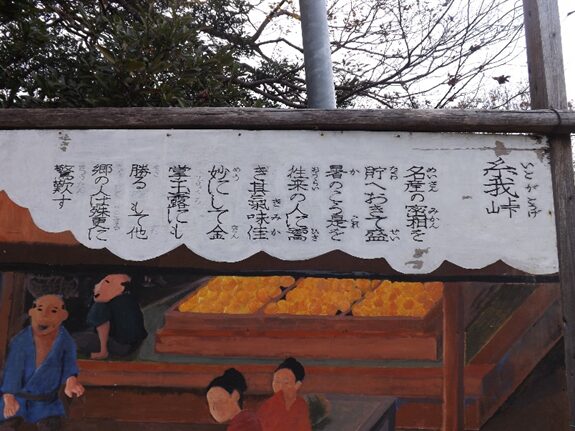 糸我峠
いとがとうげ
名産の蜜柑を
貯へおきて盛
暑のころ是を
往来の人に鬻
ぎ其氣味佳
妙にして金
掌玉露にも
勝る もて他
郷の人は殊更に
驚歎す